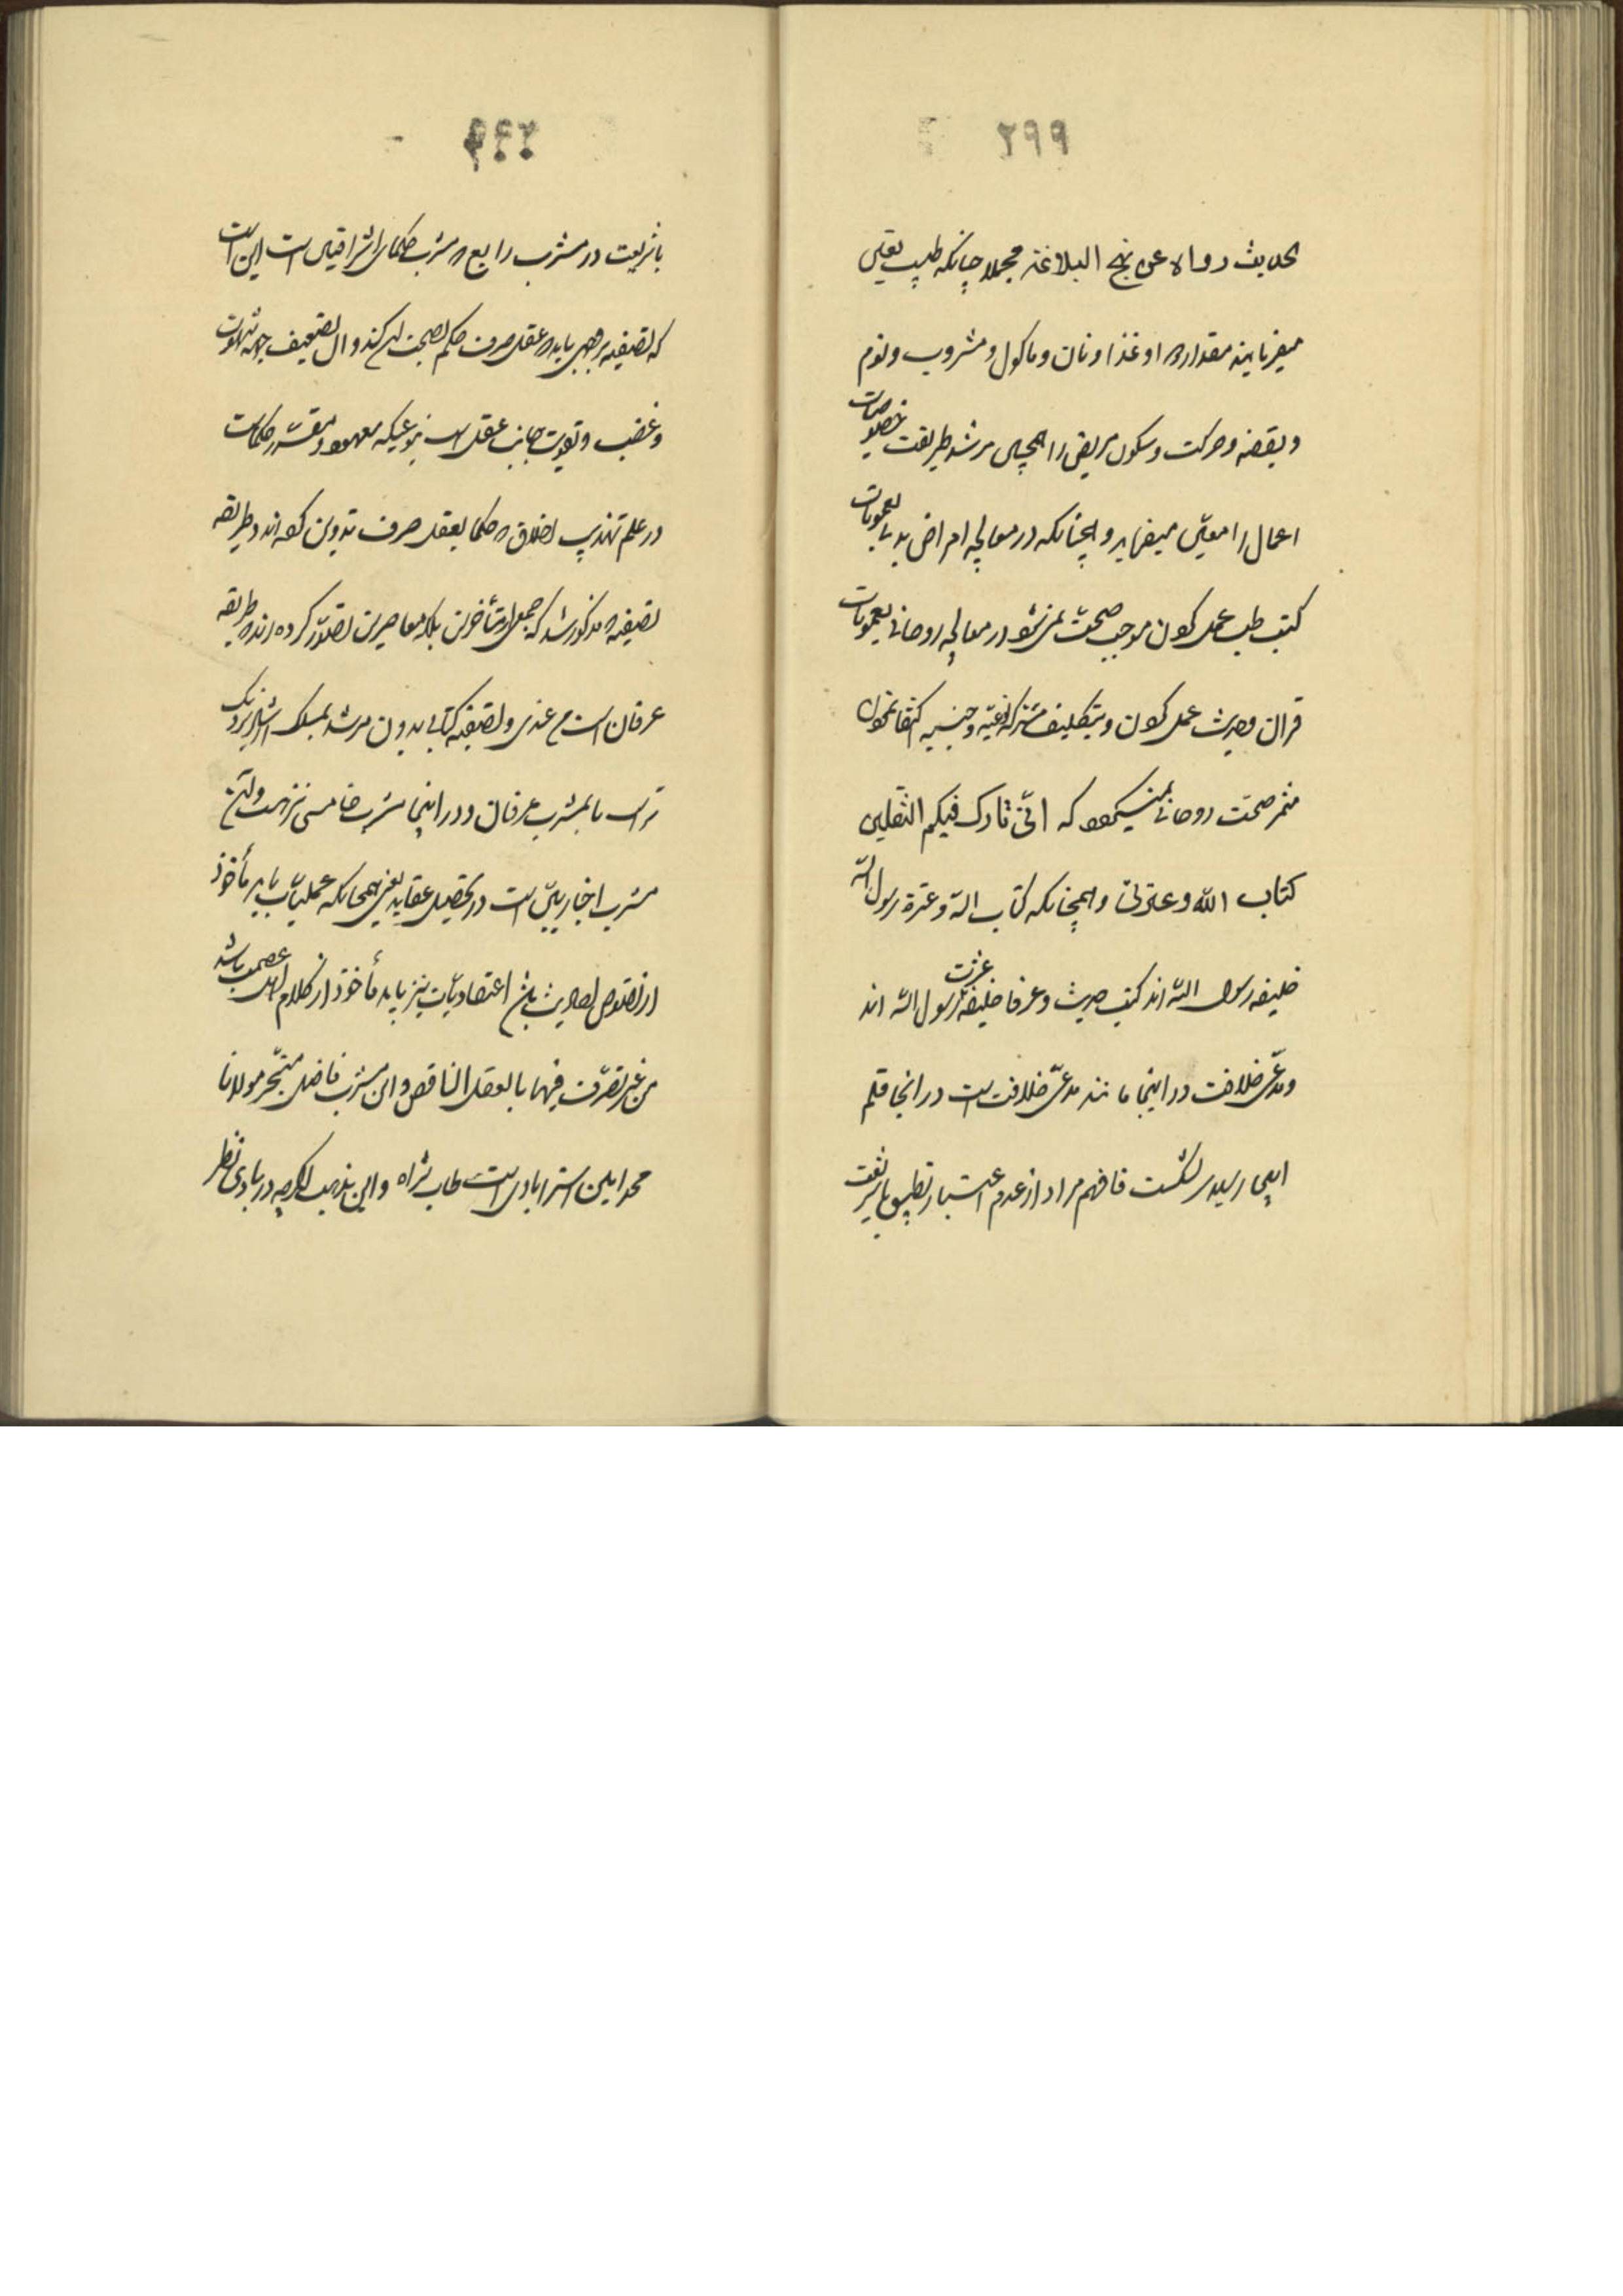 ۲۹۹
الحدیث رواه عن نهج البلاغة مجملا چنانکه طبیب تعیین
میفرمایند مقدار دوا و غذا و نان و ماکول و مشروب و نوم
و یقضه و حرکت و سکون مریض را همچنین مرشد طریقت خصوصیات
اعمال را معین میفرماید و همچنانکه در معالجه امراض بدنی بعمومات
کتب طب عمل کردن موجب صحت نمیشود در معالجه روحانی بعمومات
قران و حدیث عمل کردن و بتکلیف مشترکه نوعیه و جنسیه اکتفا نمودن
مثمر صحت روحانی نمیشود که انی تارک فیکم الثقلین
کتاب الله و عترتی و همچنانکه کتاب الله و عترة رسول الله
خلیفه رسول الله اند کتب حدیث و عرفا خلیفه عترت رسول الله اند
و مدعی خلافت در اینجا مانند مدعی خلافت است در انجا قلم
اینجا رسید سر بشکست فافهم مراد از عدم اعتبار تطبیق با شریعت
۳۰۰
با شریعت در مشرب رابع که مشرب حکمای اشراقیین است این است
که تصفیه بر وجهی باید که عقل صرف حکم بصحت ان کند و ان تضعیف جهة شهوت
و غضب و تقویت جانب عقل است بنوعیکه معهود و مقرر حکما است
در علم تهذیب اخلاق که حکما بعقل صرف تدوین کرده اند و طریقه
تصفیه که مذکور شد که جمعی از متأخرین بلکه معاصرین تصور کرده اند که طریقه
عرفان است م عندی و تصفیه کتابی بدون مرشد بمسلک اشراق نزدیک
تر است تا بمشرب عرفان و در اینجا مشرب خامسی نیز هست و آن
مشرب اخباریین است در تحصیل عقاید یعنی همچنانکه عملیات باید مأخوذ
از نصوص احادیث باشد اعتقادیات نیز باید مأخوذ از کلام اهل عصمت باشد
من غیر تصرف فیها بالعقل الناقص و این مشرب فاضل متبحر مولانا
محمد امین استرابادی است طاب ثراه و این مذهب اگرچه در بادی نظر